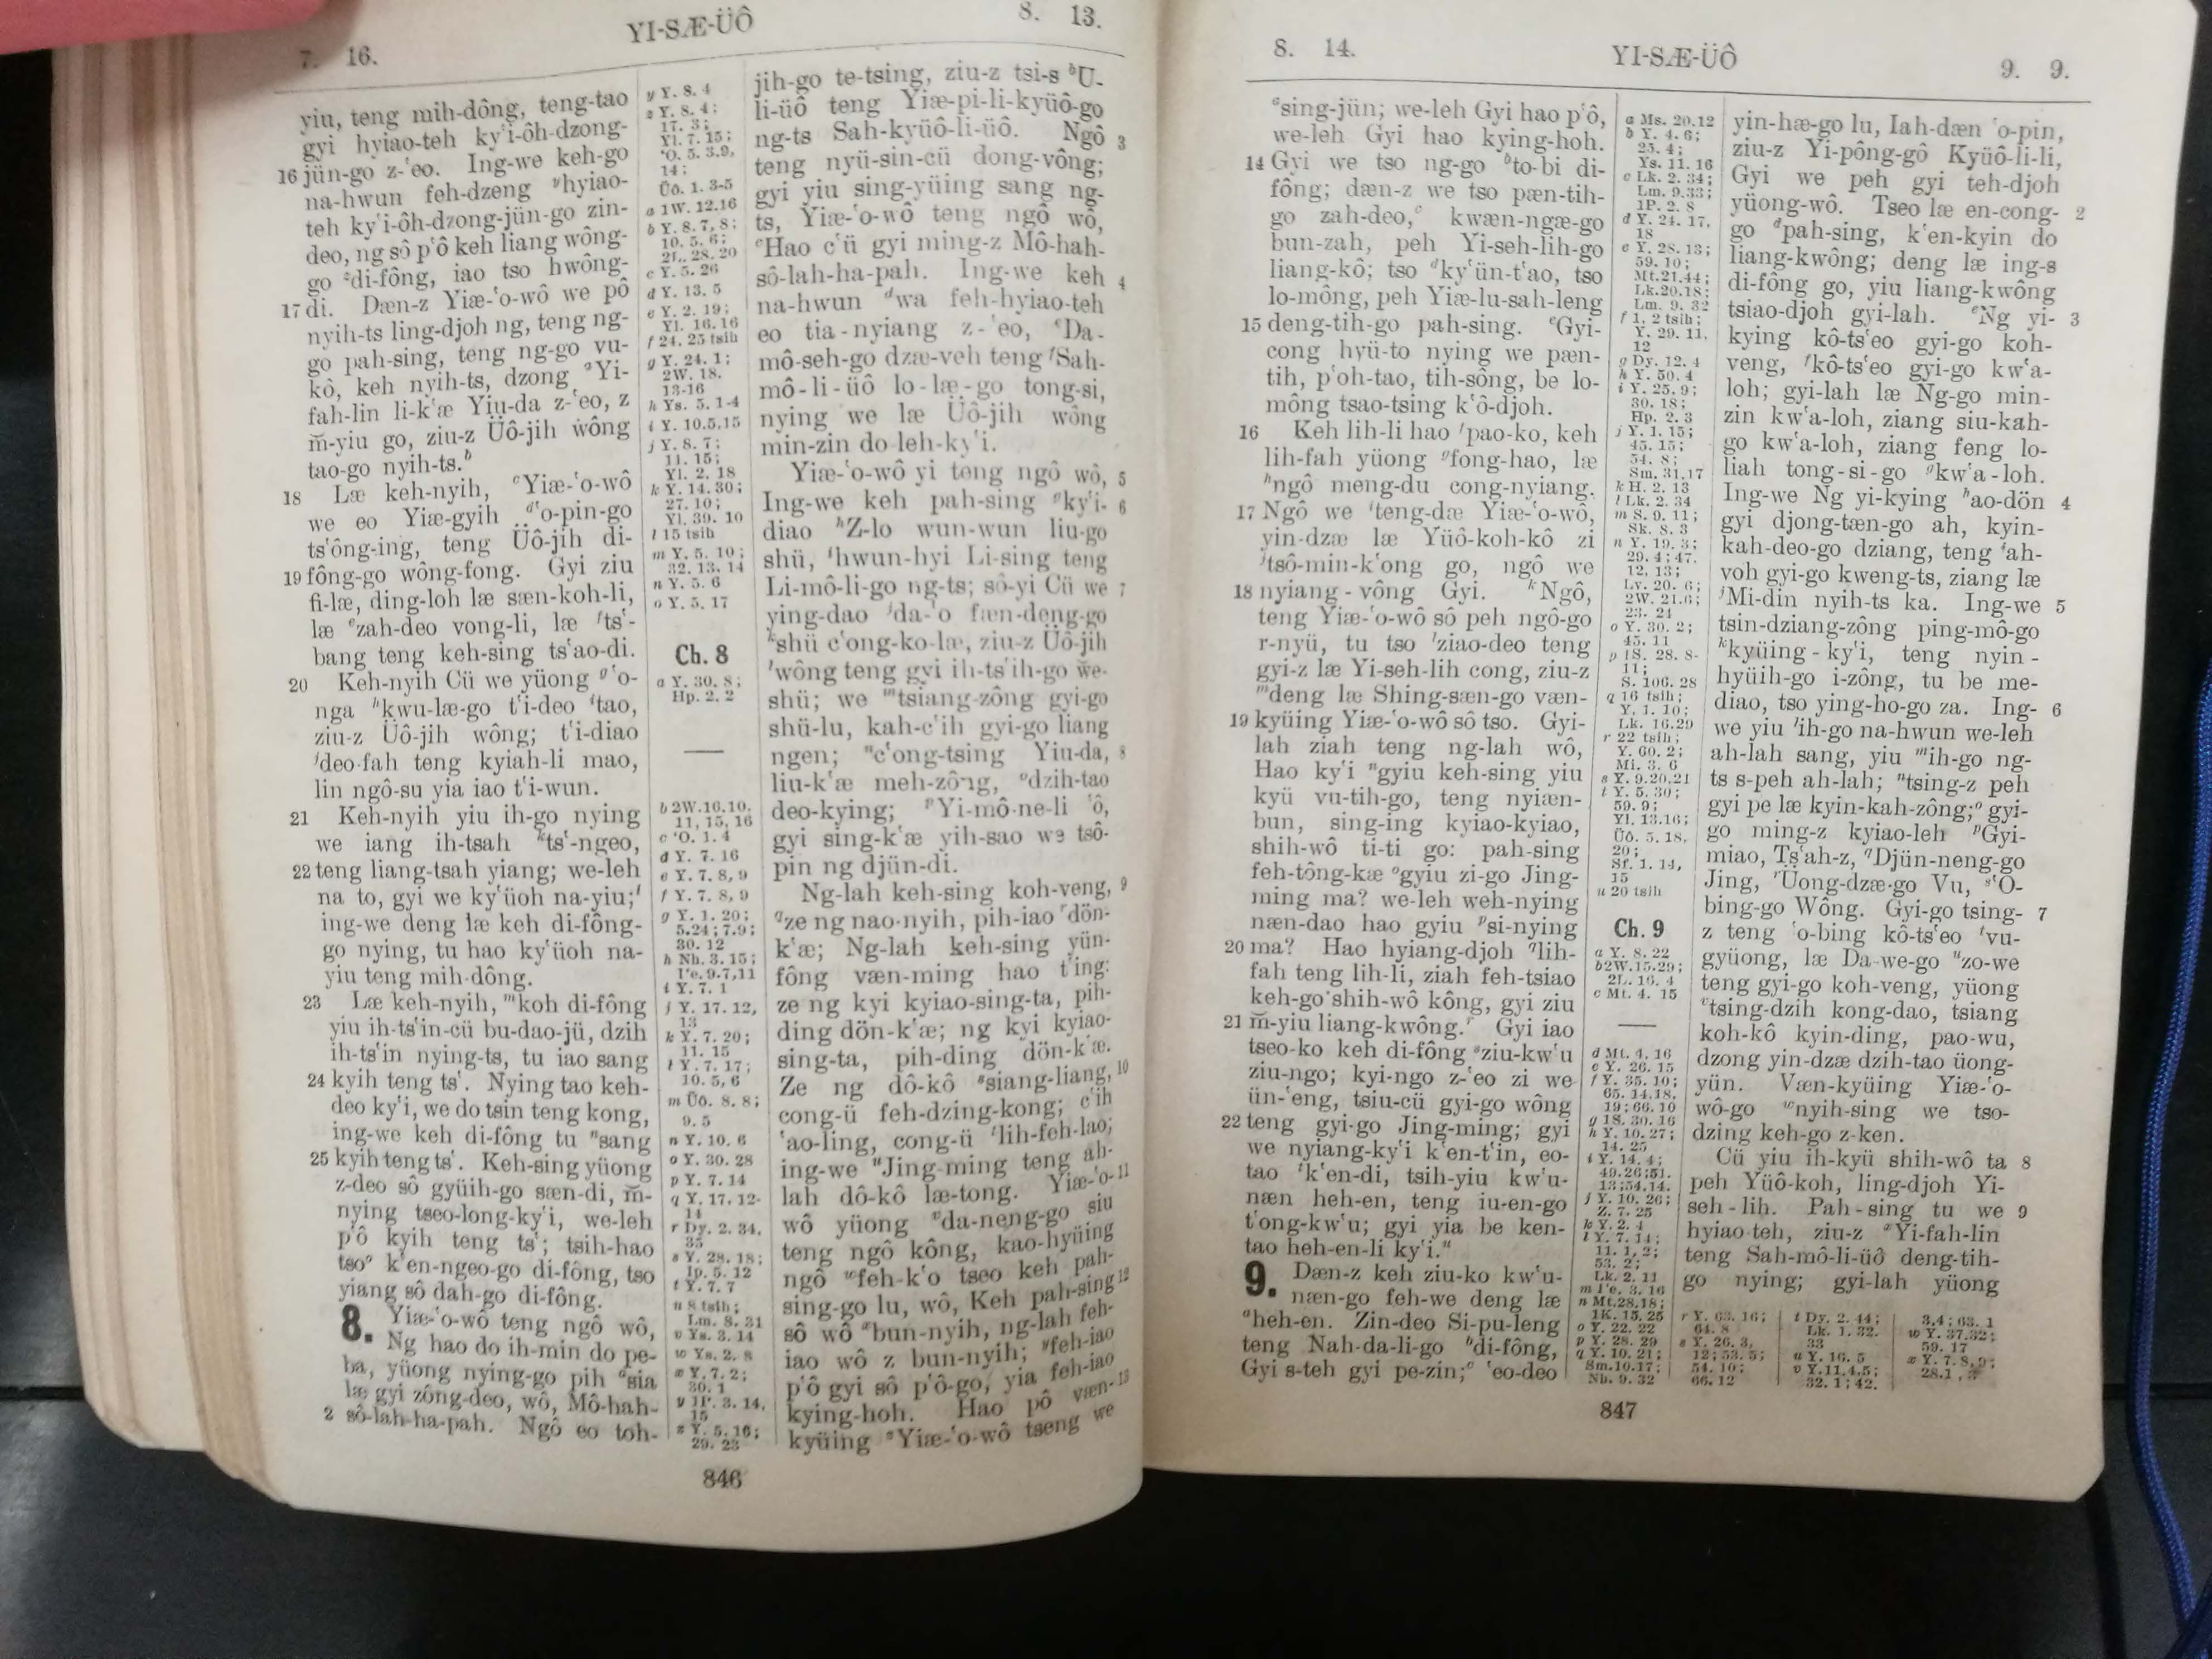 7. 16.
YI-SÆ-ÜÔ
8. 13.
yiu, teng mih-dông, teng-tao
gyi hyiao-teh ky‘i-ôh-dzong-
16 jün-go z-‘eo. Ing-we keh-go
na-hwun feh-dzeng ʸhyiao-
teh ky‘i-ôh-dzong-jün-go zin-
deo, ng sô p‘ô keh liang wông-
go ᶻdi-fông, iao tso hwông-
17 di. Dæn-z Yiæ-‘o-wô we pô
nyih-ts ling-djoh ng, teng ng-
go pah-sing, teng ng-go vu-
kô, keh nyih-ts, dzong ᵃYi-
fah-lin li-k‘æ Yiu-da z-‘eo, z
m̆-yiu go, ziu-z Üô-jih wông
tao-go nyih-ts.ᵇ
18 Læ keh-nyih, ᶜYiæ-‘o-wô
we eo Yiæ-gyih ᵈ‘o-pin-go
ts‘ông-ing, teng Üô-jih di-
19 fông-go wông-fong. Gyi ziu
fi-læ, ding-loh læ sæn-koh-li,
læ ᵉzah-deo vong-li, læ ᶠts‘-
bang teng keh-sing ts‘ao-di.
20 Keh-nyih Cü we yüong ᵍ‘o-
nga ʰkwu-læ-go t‘i-deo ⁱtao,
ziu-z Üô-jih wông; t‘i-diao
ʲdeo-fah teng kyiah-li mao,
lin ngô-su yia iao t‘i-wun.
21 Keh-nyih yiu ih-go nying
we iang ih-tsah ᵏts‘-ngeo,
22 teng liang-tsah yiang; we-leh
na to, gyi we ky‘üoh na-yiu;ˡ
ing-we deng læ keh di-fông-
go nying, tu hao ky‘üoh na-
yiu teng mih-dông.
23 Læ keh-nyih, ᵐkoh di-fông
yiu ih-ts‘in-cü bu-dao-jü, dzih
ih-ts‘in nying-ts, tu iao sang
24 kyih teng ts‘. Nying tao keh-
deo ky‘i, we do tsin teng kong,
ing-we keh di-fông tu ⁿsang
25 kyih teng ts‘. Keh-sing yüong
z-deo sô gyüih-go sæn-di, m̆-
nying tseo-long-ky‘i, we-leh
p‘ô kyih teng ts‘; tsih-hao
tsoᵒ k‘en-ngeo-go di-fông, tso
yiang sô dah-go di-fông.
8. Yiæ-‘o-wô teng ngô wô,
Ng hao do ih-min do pe-
ba, yüong nying-go pih ᵃsia
læ gyi zông-deo, wô, Mô-hah-
2 sô-lah-ha-pah. Ngô eo toh-
y Y. 8. 4
z Y. 8. 4;
17. 3;
Yl. 7. 15;
‘O. 5. 3.9,
14;
Üô. 1. 3-5
a 1W. 12.16
b Y. 8. 7, 8;
10. 5, 6;
2L. 28. 20
c Y. 5. 26
d Y. 13. 5
e Y. 2. 19;
Yl. 16. 16
f 24. 25 tsih
g Y. 24. 1;
2W. 18.
13-16
h Ys. 5. 1-4
i Y. 10.5.15
j Y. 8. 7;
11. 15;
Yl. 2. 18
k Y. 14. 30;
27. 10;
Yl. 39. 10
l 15 tsih
m Y. 5. 10;
32. 13, 14
n Y. 5. 6
o Y. 5. 17
Ch. 8
a Y. 30. 8;
Hp. 2. 2
b 2W.16.10,
11, 15, 16
c ‘O. 1. 4
d Y. 7. 16
e Y. 7. 8, 9
f Y. 7. 8, 9
g Y. 1. 20;
5.24; 7.9;
30. 12
h Nh. 3. 15;
I‘e. 9.7,11
i Y. 7. 1
j Y. 17. 12,
13
k Y. 7. 20;
11. 15
l Y. 7. 17;
10. 5, 6
m Üô. 8. 8;
9. 5
n Y. 10. 6
o Y. 30. 28
p Y. 7. 14
q Y. 17. 12-
14
r Dy. 2. 34,
35
s Y. 28. 18;
Ip. 5. 12
t Y. 7. 7
u 8 tsih;
Lm. 8. 31
v Ys. 3. 14
w Ys. 2. 8
x Y. 7. 2;
30. 1
y 1P. 3. 14,
15
z Y. 5. 16;
29. 23
jih-go te-tsing, ziu-z tsi-s ᵇU-
li-üô teng Yiæ-pi-li-kyüô-go
ng-ts Sah-kyüô-li-üô. Ngô 3
teng nyü-sin-cü dong-vông;
gyi yiu sing-yüing sang ng-
ts, Yiæ-‘o-wô teng ngô wô,
ᶜHao c‘ü gyi ming-z Mô-hah-
sô-lah-ha-pah. Ing-we keh 4
na-hwun ᵈwa feh-hyiao-teh
eo tia-nyiang z-‘eo, ᵉDa-
mô-seh-go dzæ-veh teng ᶠSah-
mô-li-üô lo-læ-go tong-si,
nying we læ Üô-jih wông
min-zin do leh-ky‘i.
Yiæ-‘o-wô yi teng ngô wô, 5
Ing-we keh pah-sing ᵍky‘i- 6
diao ʰZ-lo wun-wun liu-go
shü, ⁱhwun-hyi Li-sing teng
Li-mô-li-go ng-ts; sô-yi Cü we 7
ying-dao ʲda-‘o fæn-deng-go
ᵏshü c‘ong-ko-læ, ziu-z Üô-jih
ˡwông teng gyi ih-ts‘ih-go we-
shü; we ᵐtsiang-zông gyi-go
shü-lu, kah-c‘ih gyi-go liang
ngen; ⁿc‘ong-tsing Yiu-da, 8
liu-k‘æ meh-zông, ᵒdzih-tao
deo-kying; ᵖYi-mô-ne-li ‘ô,
gyi sing-k‘æ yih-sao we tsô-
pin ng djün-di.
Ng-lah keh-sing koh-veng, 9
ᑫze ng nao-nyih, pih-iao ʳdön-
k‘æ; Ng-lah keh-sing yün-
fông væn-ming hao t‘ing:
ze ng kyi kyiao-sing-ta, pih-
ding dön-k‘æ; ng kyi kyiao-
sing-ta, pih-ding dön-k‘æ.
Ze ng dô-kô ˢsiang-liang, 10
cong-ü feh-dzing-kong; c‘ih
‘ao-ling, cong-ü ᵗlih-feh-lao;
ing-we ᵘJing-ming teng ah-
lah dô-kô læ-tong. Yiæ-‘o- 11
wô yüong ᵛda-neng-go siu
teng ngô kông, kao-hyüing
ngô ʷfeh-k‘o tseo keh pah-
sing-go lu, wô, Keh pah-sing 12
sô wô ˣbun-nyih, ng-lah feh-
iao wô z bun-nyih; ʸfeh-iao
p‘ô gyi sô p‘ô-go, yia feh-iao
kying-hoh. Hao pô væn- 13
kyüing ᶻYiæ-‘o-wô tseng we
846
8. 14.
YI-SÆ-ÜÔ
9. 9.
ᵃsing-jün; we-leh Gyi hao p‘ô,
we-leh Gyi hao kying-hoh.
14 Gyi we tso ng-go ᵇto-bi di-
fông; dæn-z we tso pæn-tih-
go zah-deo,ᶜ kwæn-ngæ-go
bun-zah, peh Yi-seh-lih-go
liang-kô; tso ᵈky‘ün-t‘ao, tso
lo-mông, peh Yiæ-lu-sah-leng
15 deng-tih-go pah-sing. ᵉGyi-
cong hyü-to nying we pæn-
tih, p‘oh-tao, tih-sông, be lo-
mông tsao-tsing k‘ô-djoh.
16 Keh lih-li hao ᶠpao-ko, keh
lih-fah yüong ᵍfong-hao, læ
ʰngô meng-du cong-nyiang.
17 Ngô we ⁱteng-dæ Yiæ-‘o-wô,
yin-dzæ læ Yüô-koh-kô zi
ʲtsô-min-k‘ong go, ngô we
18 nyiang-vông Gyi. ᵏNgô,
teng Yiæ-‘o-wô sô peh ngô-go
r-nyü, tu tso ˡziao-deo teng
gyi-z læ Yi-seh-lih cong, ziu-z
ᵐdeng læ Shing-sæn-go væn-
19 kyüing Yiæ-‘o-wô sô tso. Gyi-
lah ziah teng ng-lah wô,
Hao ky‘i ⁿgyiu keh-sing yiu
kyü vu-tih-go, teng nyiæn-
bun, sing-ing kyiao-kyiao,
shih-wô ti-ti go: pah-sing
feh-tông-kæ ᵒgyiu zi-go Jing-
ming ma? we-leh weh-nying
næn-dao hao gyiu ᵖsi-nying
20 ma? Hao hyiang-djoh ᑫlih-
fah teng lih-li, ziah feh-tsiao
keh-go shih-wô kông, gyi ziu
21 m̆-yiu liang-kwông.ʳ Gyi iao
tseo-ko keh di-fông ˢziu-kw‘u
ziu-ngo; kyi-ngo z-‘eo zi we
ün-‘eng, tsiu-cü gyi-go wông
22 teng gyi-go Jing-ming; gyi
we nyiang-ky‘i k‘en-t‘in, eo-
tao ᵗk‘en-di, tsih-yiu kw‘u-
næn heh-en, teng iu-en-go
t‘ong-kw‘u; gyi yia be ken-
tao heh-en-li ky‘i.ᵘ
9. Dæn-z keh ziu-ko kw‘u-
næn-go feh-we deng læ
ᵃheh-en. Zin-deo Si-pu-leng
teng Nah-da-li-go ᵇdi-fông,
Gyi s-teh gyi pe-zin;ᶜ ‘eo-deo
a Ms. 20.12
b Y. 4. 6;
25. 4;
Ys. 11. 16
c Lk. 2. 34;
Lm. 9.33;
1P. 2. 8
d Y. 24. 17,
18
e Y. 28. 13;
59. 10;
Mt.21.44;
Lk.20.18;
Lm. 9. 32
f 1. 2 tsih;
Y. 29. 11,
12
g Dy. 12. 4
h Y. 50. 4
i Y. 25. 9;
30. 18;
Hp. 2. 3
j Y. 1. 15;
45. 15;
54. 8;
Sm. 31.17
k H. 2. 13
l Lk. 2. 34
m S. 9. 11;
Sk. 8. 3
n Y. 19. 3;
29. 4; 47.
12, 13;
Lv. 20. 6;
2W. 21.6;
23. 24
o Y. 30. 2;
45. 11
p 1S. 28. 8-
11;
S. 106. 28
q 16 tsih;
Y. 1. 10;
Lk. 16.29
r 22 tsih;
Y. 60. 2;
Mi. 3. 6
s Y. 9.20,21
t Y. 5. 30;
59. 9;
Yl. 13.16;
Üô. 5. 18,
20;
Sf. 1. 14,
15
u 20 tsih
Ch. 9
a Y. 8. 22
b 2W.15.29;
2L. 16. 4
c Mt. 4. 15
d Mt. 4. 16
e Y. 26. 15
f Y. 35. 10;
65. 14.18,
19; 66. 10
g 1S. 30. 16
h Y. 10. 27;
14. 25
i Y. 14. 4;
49.26;51.
13;54.14.
j Y. 10. 26;
Z. 7. 25
k Y. 2. 4
l Y. 7. 14;
11. 1, 2;
53. 2;
Lk. 2. 11
m I‘e. 3. 16
n Mt.28.18;
1K. 15. 25
o Y. 22. 22
p Y. 28. 29
q Y. 10. 21;
Sm.10.17;
Nh. 9. 32
yin-hæ-go lu, Iah-dæn ‘o-pin,
ziu-z Yi-pông-gô Kyüô-li-li,
Gyi we peh gyi teh-djoh
yüong-wô. Tseo læ en-cong- 2
go ᵈpah-sing, k‘en-kyin do
liang-kwông; deng læ ing-s
di-fông go, yiu liang-kwông
tsiao-djoh gyi-lah. ᵉNg yi- 3
kying kô-ts‘eo gyi-go koh-
veng, ᶠkô-ts‘eo gyi-go kw‘a-
loh; gyi-lah læ Ng-go min-
zin kw‘a-loh, ziang siu-kah-
go kw‘a-loh, ziang feng lo-
liah tong-si-go ᵍkw‘a-loh.
Ing-we Ng yi-kying ʰao-dön 4
gyi djong-tæn-go ah, kyin-
kah-deo-go dziang, teng ⁱah-
voh gyi-go kweng-ts, ziang læ
ʲMi-din nyih-ts ka. Ing-we 5
tsin-dziang-zông ping-mô-go
ᵏkyüing-ky‘i, teng nyin-
hyüih-go i-zông, tu be me-
diao, tso ying-ho-go za. Ing- 6
we yiu ˡih-go na-hwun we-leh
ah-lah sang, yiu ᵐih-go ng-
ts s-peh ah-lah; ⁿtsing-z peh
gyi pe læ kyin-kah-zông;ᵒ gyi-
go ming-z kyiao-leh ᵖGyi-
miao, Ts‘ah-z, ᑫDjün-neng-go
Jing, ʳÜong-dzæ-go Vu, ˢ‘O-
bing-go Wông. Gyi-go tsing- 7
z teng ‘o-bing kô-ts‘eo ᵗvu-
gyüong, læ Da-we-go ᵘzo-we
teng gyi-go koh-veng, yüong
ᵛtsing-dzih kong-dao, tsiang
koh-kô kyin-ding, pao-wu,
dzong yin-dzæ dzih-tao üong-
yün. Væn-kyüing Yiæ-‘o-
wô-go ʷnyih-sing we tso-
dzing keh-go z-ken.
Cü yiu ih-kyü shih-wô ta 8
peh Yüô-koh, ling-djoh Yi-
seh-lih. Pah-sing tu we 9
hyiao teh, ziu-z ˣYi-fah-lin
teng Sah-mô-li-üô deng-tih-
go nying; gyi-lah yüong
r Y. 63. 16;
64. 8
s Y. 26. 3,
12; 53. 5;
54. 10;
66. 12
t Dy. 2. 44;
Lk. 1. 32.
33
u Y. 16. 5
v Y.11.4,5;
32. 1; 42.
3,4; 63. 1
w Y. 37.32;
59. 17
x Y. 7. 8,9;
28.1,3
847